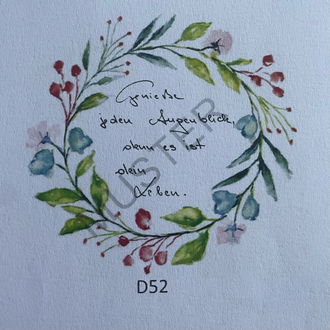 Genieße
jeden Augenblick,
denn es ist
dein
Leben.
MUSTER
D52